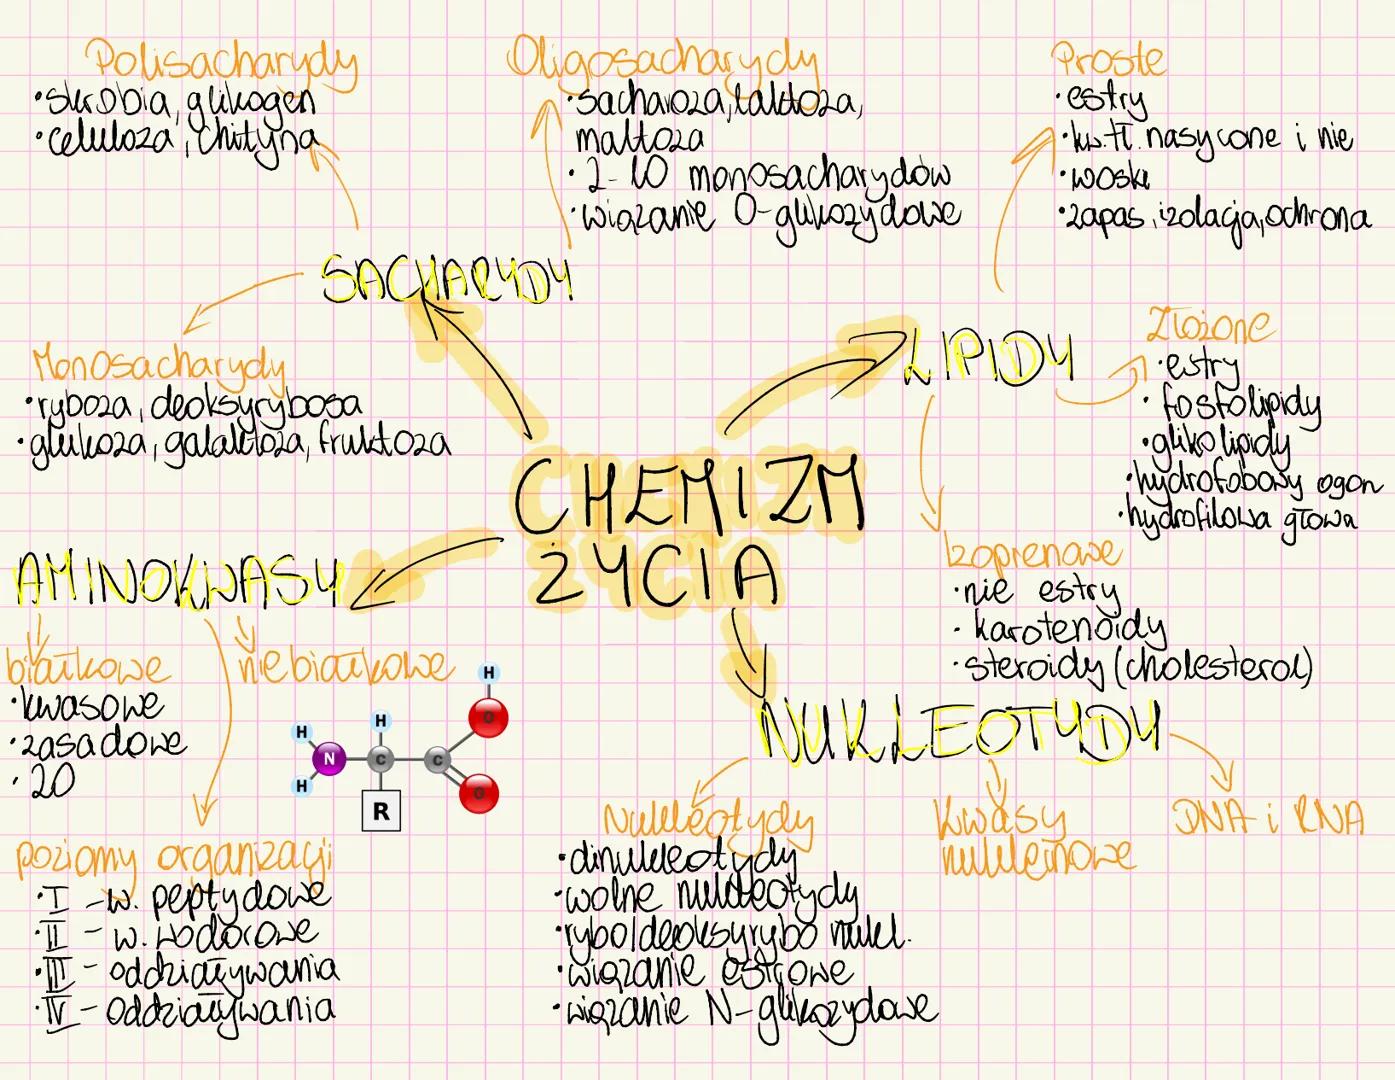 Polisacharydy
•skrobia, glikogen
•celuloza, chityna
Oligosacharydy
•sacharoza, laktoza,
maltoza
•2-10 monosacharydów
•wiązanie O-glikozydowe
Proste
•estry
•kw. tł. nasycone i nie
•woski
•zapas, izolacja, ochrona
SACHARYDY
Monosacharydy
•ryboza, deoksyrybosa
•glukoza, galaktoza, fruktoza
LIPIDY
Złożone
•estry
•fosfolipidy
•glikolipidy
•hydrofobowy ogon
•hydrofilowa głowa
CHEMIZM
ŻYCIA
Izoprenowe
•nie estry
•karotenoidy
•steroidy (cholesterol)
AMINOKWASY
białkowe
•kwasowe
•zasadowe
•20
niebiałkowe
H
O
H
H
N
C
C
H
O
R
poziomy organizacji
•I - w. peptydowe
•II - w. wodorowe
•III - oddziaływania
•IV - oddziaływania
NUKLEOTYDY
Nukleotydy
•dinukleotydy
•wolne nukleotydy
•rybo/deoksyrybo nukl.
•wiązanie estrowe
•wiązanie N-glikozydowe
Kwasy
nukleinowe
DNA i RNA